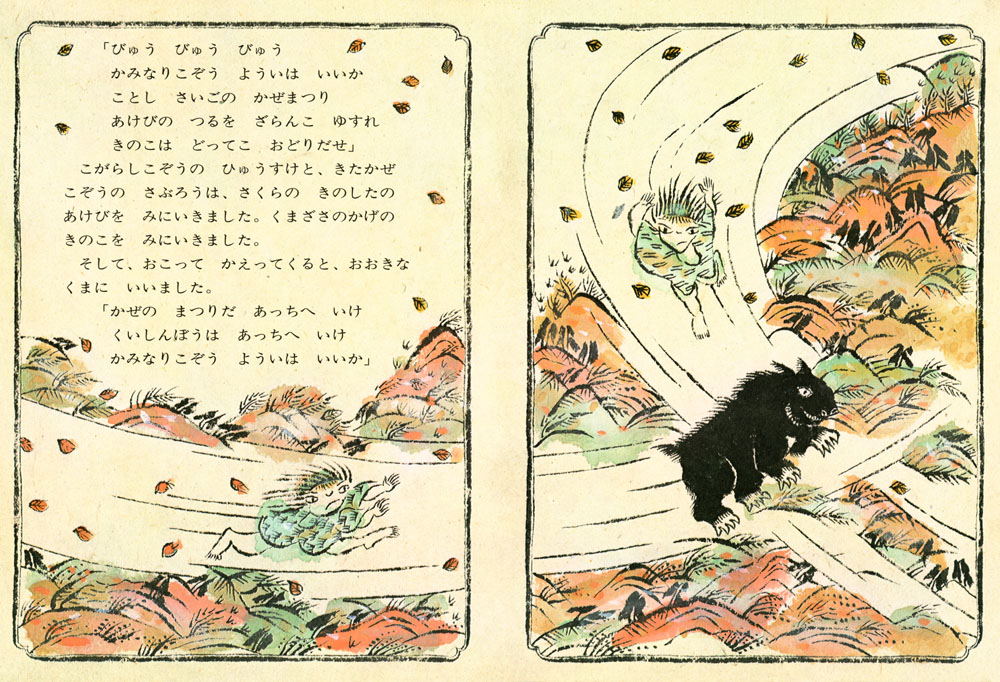 「びゅう　びゅう　びゅう
かみなりこぞう　よういは　いいか
ことし　さいごの　かぜまつり
あけびの　つるを　ざらんこ　ゆすれ
きのこは　どってこ　おどりだせ」
こがらしこぞうの　ひゅうすけと、きたかぜ
こぞうの　さぶろうは、さくらの　きのしたの
あけびを　みにいきました。くまざさのかげの
きのこを　みにいきました。
そして、おこって　かえってくると、おおきな
くまに　いいました。
「かぜの　まつりだ　あっちへ　いけ
くいしんぼうは　あっちへ　いけ
かみなりこぞう　よういは　いいか」